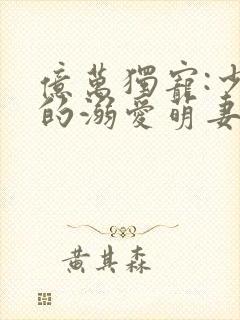 億萬獨寵:少
的溺愛萌妻
黃其森